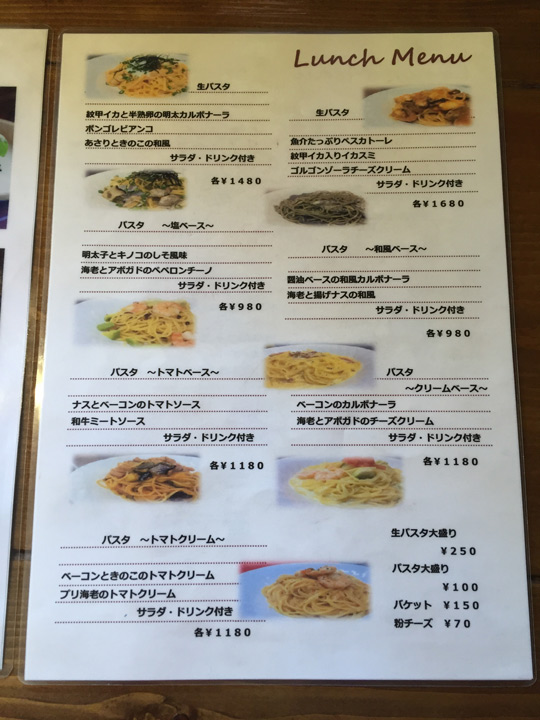 Lunch Menu
生パスタ
紋甲イカと半熟卵の明太カルボナーラ
ボンゴレビアンコ
あさりときのこの和風
サラダ・ドリンク付き
各￥1480
生パスタ
魚介たっぷりペスカトーレ
紋甲イカ入りイカスミ
ゴルゴンゾーラチーズクリーム
サラダ・ドリンク付き
各￥1680
パスタ　～塩ベース～
明太子とキノコのしそ風味
海老とアボガドのペペロンチーノ
サラダ・ドリンク付き
各￥980
パスタ　～和風ベース～
醤油ベースの和風カルボナーラ
海老と揚げナスの和風
サラダ・ドリンク付き
各￥980
パスタ　～トマトベース～
ナスとベーコンのトマトソース
和牛ミートソース
サラダ・ドリンク付き
各￥1180
パスタ
～クリームベース～
ベーコンのカルボナーラ
海老とアボガドのチーズクリーム
サラダ・ドリンク付き
各￥1180
パスタ　～トマトクリーム～
ベーコンときのこのトマトクリーム
プリ海老のトマトクリーム
サラダ・ドリンク付き
各￥1180
生パスタ大盛り
￥250
パスタ大盛り
￥100
バケット　￥150
粉チーズ　￥70